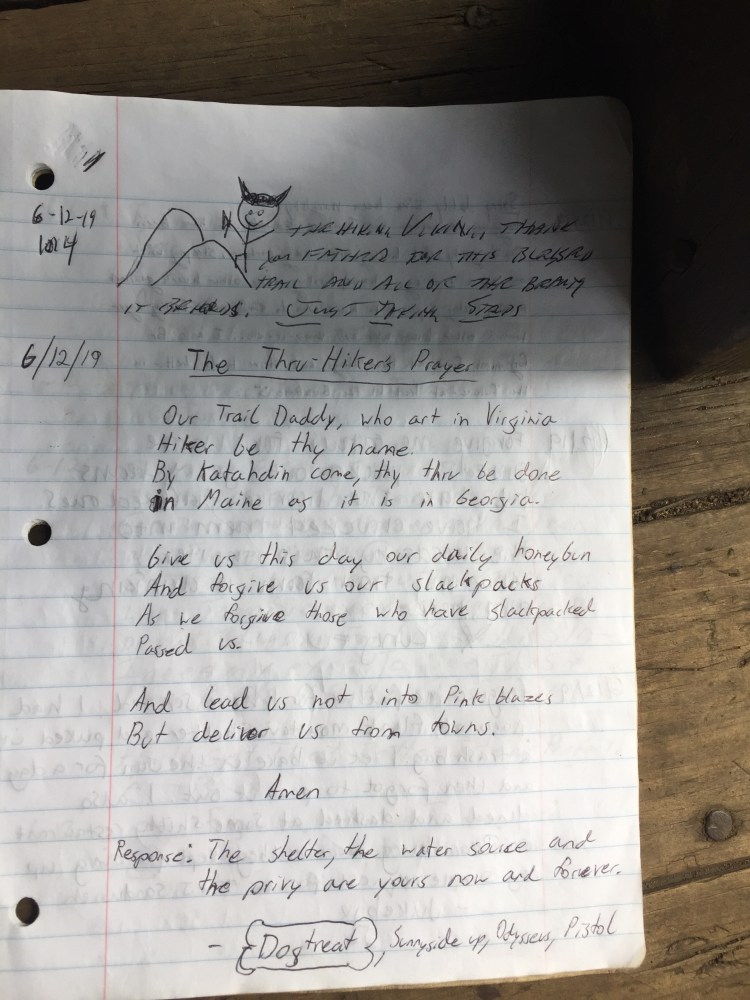 6-12-19
THE HIKING VIKING, THANK
you FATHER FOR THIS BLESSED
TRAIL AND ALL OF THE BEAUTY
IT BEHOLDS. JUST THEIR STEPS
6/12/19
The Thru-Hiker's Prayer
Our Trail Daddy, who art in Virginia
Hiker be thy name.
By Katahdin come, thy thru be done
in Maine as it is in Georgia.
Give us this day our daily honeybun
And forgive us our slackpacks
As we forgive those who have slackpacked
Passed us.
And lead us not into Pink blazes
But deliver us from towns.
Amen
Response: The shelter, the water source and
the privy are yours now and forever.
- Dogtreat, Sunnyside up, Odysseus, Pistol